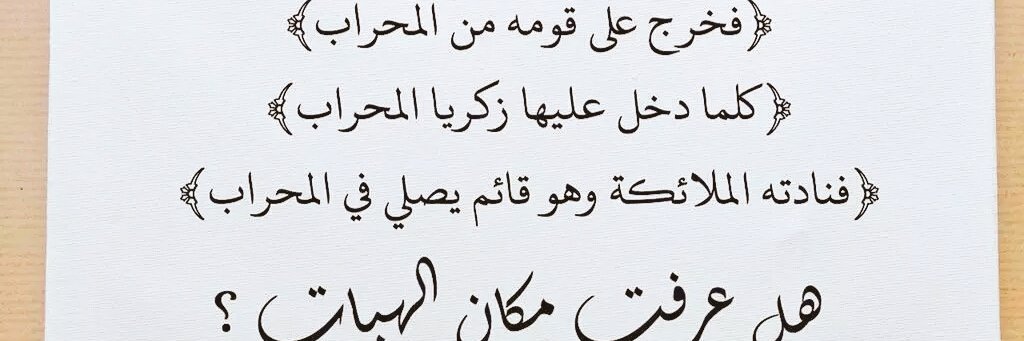 ﴿فخرج على قومه من المحراب﴾
﴿كلما دخل عليها زكريا المحراب﴾
﴿فنادته الملائكة وهو قائم يصلي في المحراب﴾
هل عرفت مكان الهبات ؟